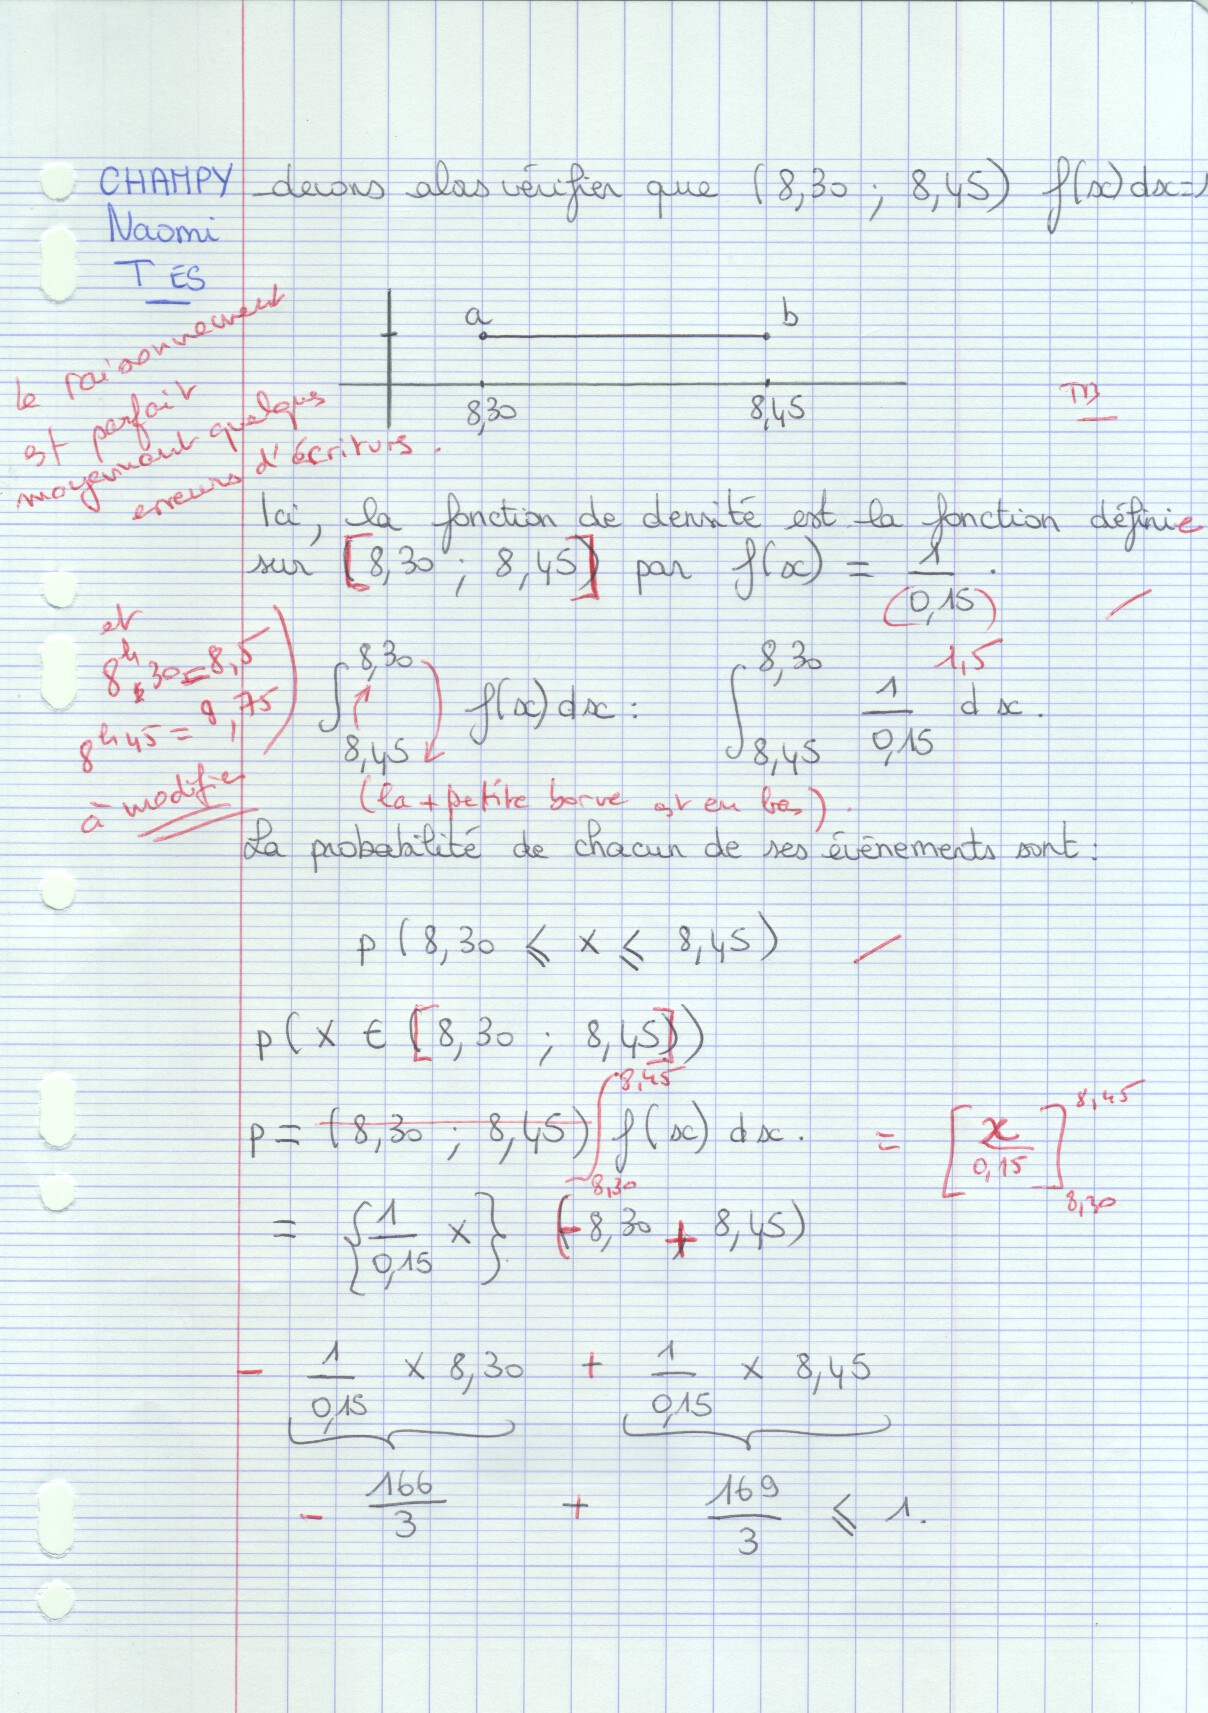 CHAMPY devons alors vérifier que (8,30 ; 8,45) f(x)dx=1
Naomi
T ES
le raisonnement
est parfait
moyennant quelques
erreurs d'écriture.
a b
8,30 8,45
TB
Ici, la fonction de densité est la fonction définie
sur [8,30 ; 8,45] par f(x) = 1/(0,15) .
1,5
et
8h30 = 8,5
8h45 = 8,75
à modifier
∫ 8,30 8,45 f(x)dx : ∫ 8,30 8,45 1/0,15 dx.
(la + petite borne est en bas).
La probabilité de chacun de ses événements sont :
p (8,30 ⩽ x ⩽ 8,45)
p(X ∈ ([8,30 ; 8,45]))
p = (8,30 ; 8,45) ∫ 8,45 8,30 f(x) dx. = [x/0,15] 8,45 8,30
= {1/0,15 x} (- 8,30 + 8,45)
- 1/0,15 × 8,30 + 1/0,15 × 8,45
- 166/3 + 169/3 ⩽ 1.